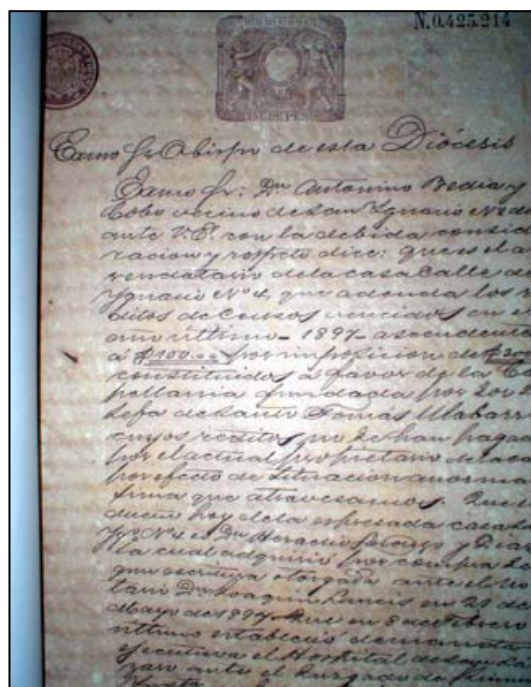 N.0.425.214
Exmo Sr Obispo de esta Diócesis
Exmo Sr: Dn Antonino Bedia y
Cobo vecino de San Ygnacio Nº 2
ante V.E. con la debida consid
racion y respeto dice: que es el a
rrendatario de la casa Calle de
Ygnacio Nº 4, que adeuda los
ditos de Censos vencidos en el
año último 1897 ascendente
á $100.00 por imposicion de
constituidos á favor de la Ca
pellania fundada por
de Santo Tomás
cuyos reditos no se han pagad
por el actual propietario de la ca
por efecto de situacion anorma
lisima que atravesamos. Que
dueño hoy de la espresada casa
Ygº Nº 4 es Dn Horacio Lorenzo y Diaz
la cual adquirió por compra se
gun escritura otorgada ante el No
tario Dn Joaquin Lancis en 21 de
Mayo de 1897. Que en 8 de Febrero
último estableció demanda
ejecutiva el Hospital de San La
zaro ante el Juzgado de